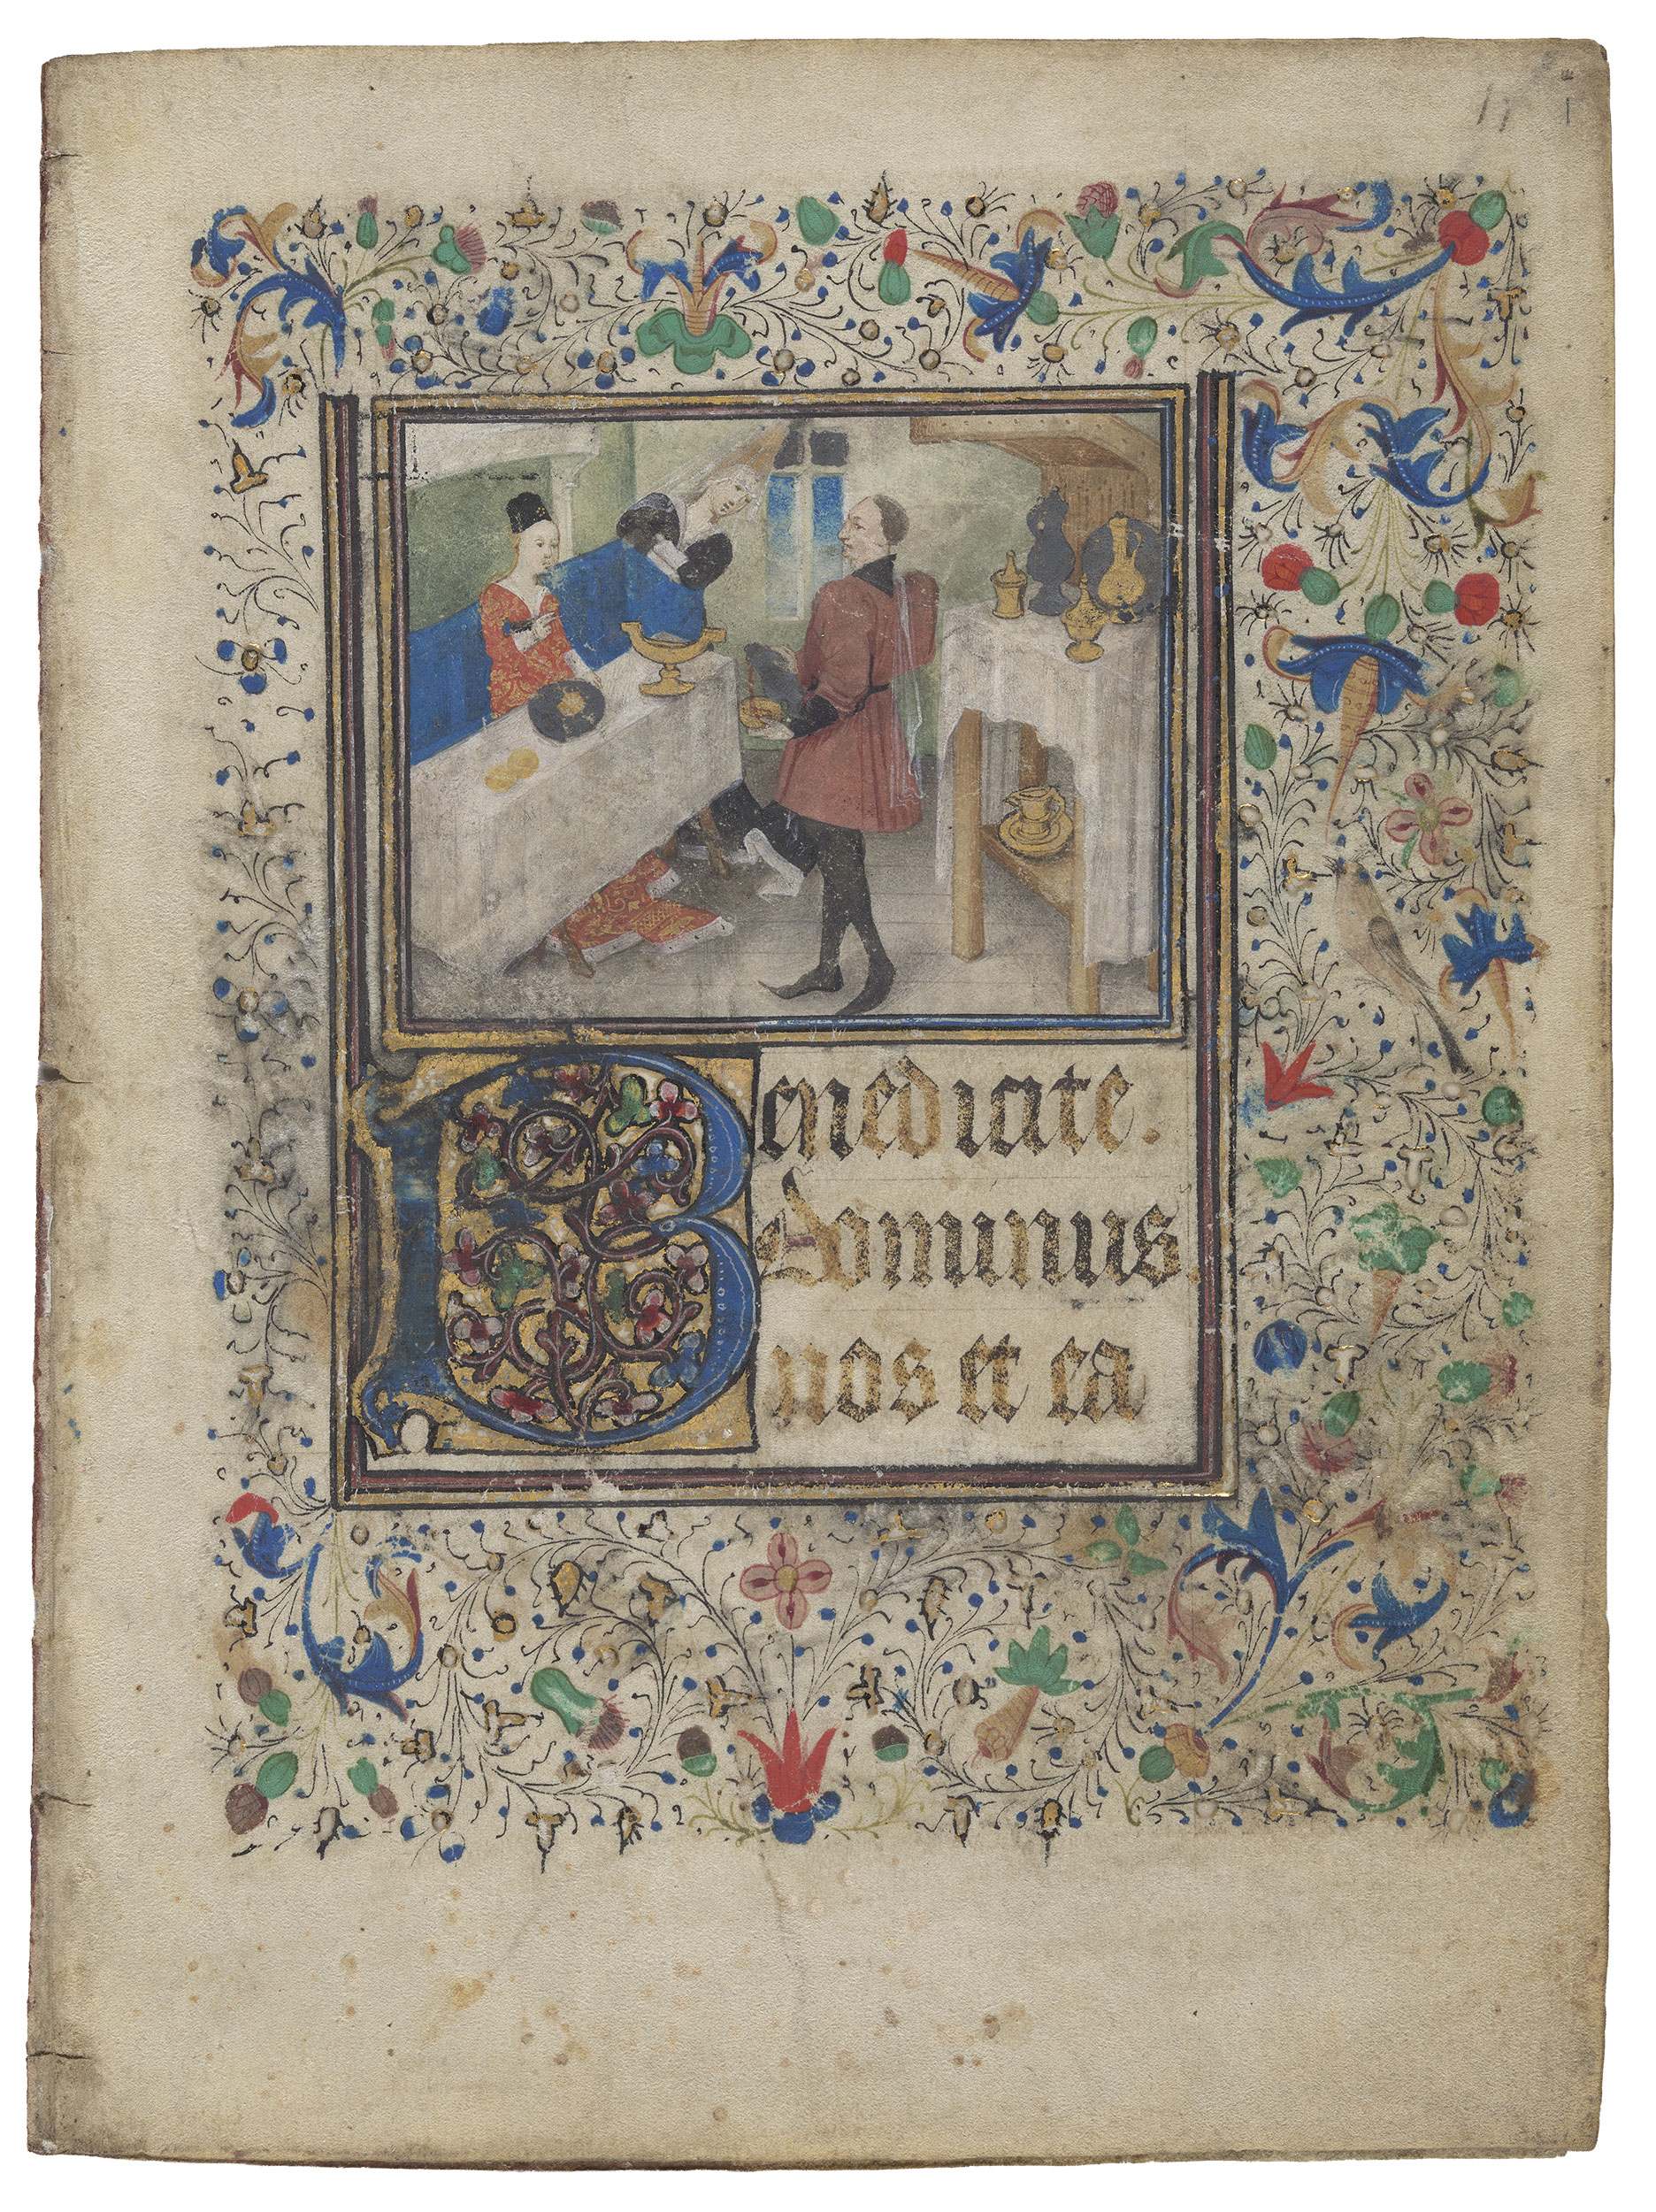 17
Benedicite.
Dominus.
nos et ea